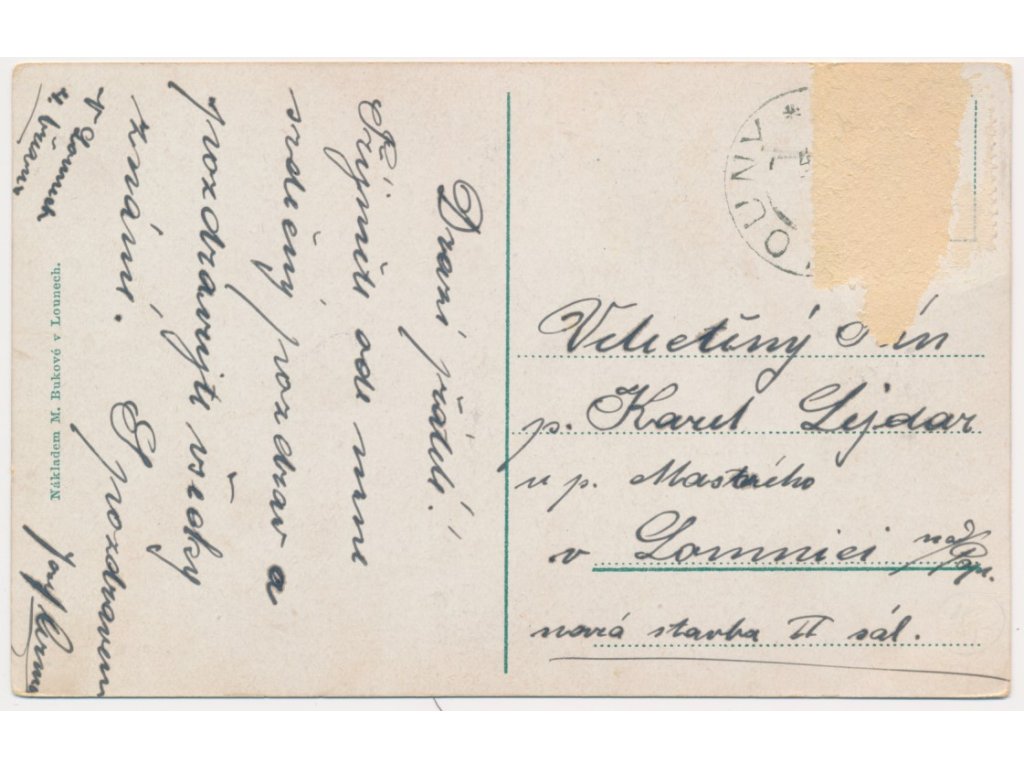 Drazí přátelé!
Příjměte ode mne
srdečný pozdrav a
pozdravujte všecky
známé.
S pozdravem
Josef
v Lounech
Nákladem M. Bukové v Lounech.
LOUNY
Velectěný Pán
p. Karel Lejdar
u p.
v Lomnici n/Pop.
nová stavba II sál.